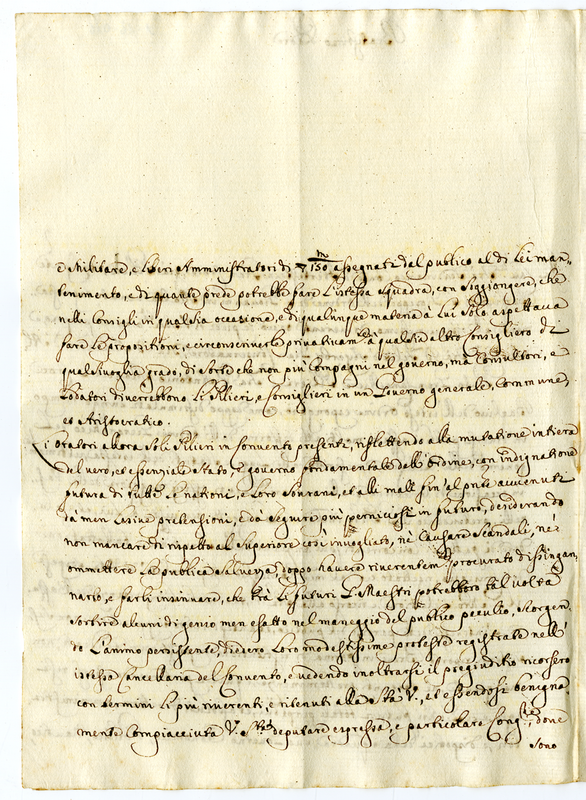 e Militare, e liberi Amministratori di 150 assegnati dal publico al di Lei man-
tenimento, e di quante prede potrebbe fare l'istessa squadra, con soggiongere, che
nelli Consigli in qualsia occasione, e di qualunque materia à Lui solo aspettava
fare le propositioni, e circonscriverle privativam.te à qualsia altro Consigliero di
qualsivoglia grado, di sorte che non più Compagni nel governo, ma Consultori, e
lodatori diverrebbono li Pilieri, e Consiglieri in un Governo generale, Commune,
et Aristocratico.
i Oratori allora soli Pilieri in Convento presenti, riflettendo alla mutatione intiera
del vero, et essenziale stato, e governo fondamentale dell'Ordine, con indignatione
futura di tutte le nationi, e loro sovrani, et alli mali fin'al pnte avvenuti
da men lesive pretensioni, e da seguire più perniciosi in futuro, desiderando
non mancare di rispetto al superiore così invogliato, nè causare scandali, nè
ommettere la publica salvezza, doppo havere riverentem.te procurato disingan-
narlo, e farli insinuare, che trà li futuri G. Maestri potrebbero tal volta
sortire alcuni di genio men esatto nel maneggio del publico peculio, scorgen-
do l'animo persistente, diedero loro modestissime proteste registrate nell'
istessa Cancellaria del Convento, e vedendo inoltrarsi il pregiuditio ricorsero
con termini li più riverenti, e ritenuti alla S.tà V., et essendosi benigna-
mente compiacciuta V. S.tà deputare espressa, e particolare Cong.ne, dove
sono